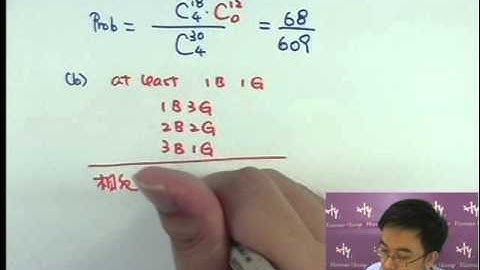 Prob = C₄¹⁸ · C₀¹² / C₄³⁰ = 68 / 609
(b) at least 1B 1G
1B 3G
2B 2G
3B 1G
相反